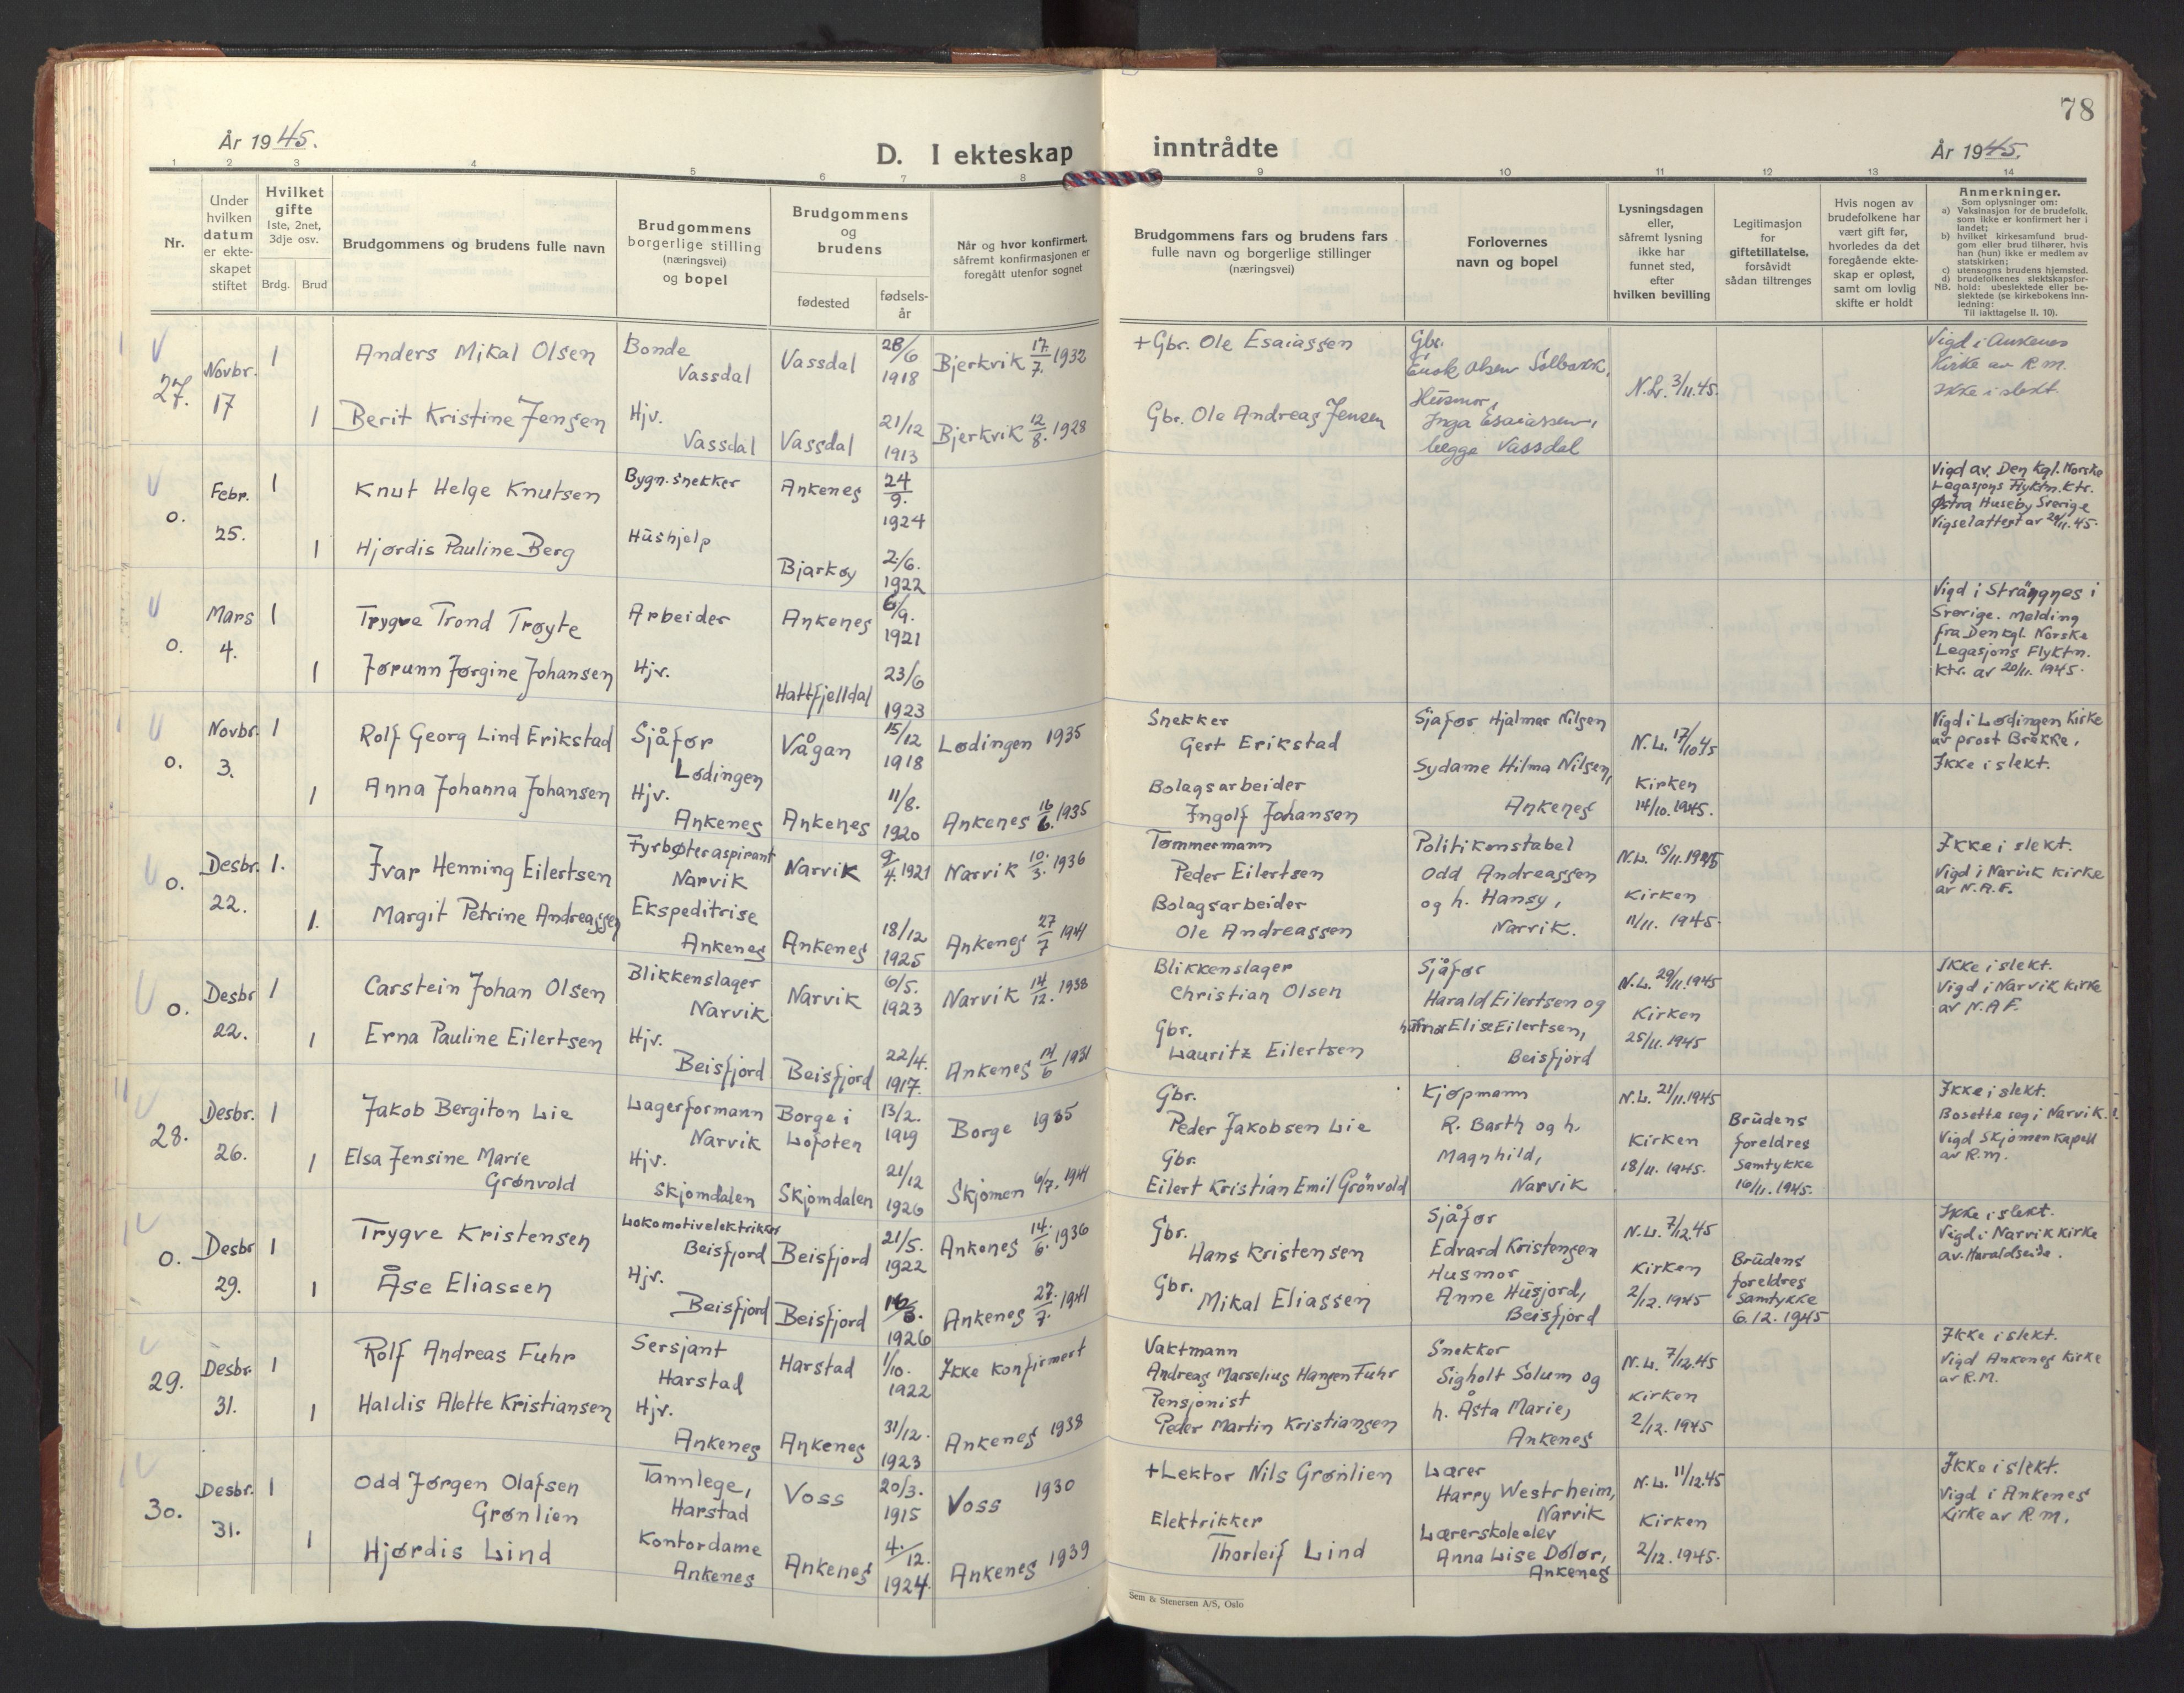 78
År 1945.
D. I ekteskap inntrådte
År 1945.
1 2 3 4 5 6 7 8 9 10 11 12 13 14
Nr.
Under hvilken datum er ekte-skapet stiftet
Hvilket gifte Iste, 2net, 3dje osv.
Brdg. Brud
Brudgommens og brudens fulle navn
Brudgommens borgerlige stilling (næringsvei) og bopel
Brudgommens og brudens
fødested
fødsels-år
Når og hvor konfirmert, såfremt konfirmasjonen er foregått utenfor sognet
Brudgommens fars og brudens fars fulle navn og borgerlige stillinger (næringsvei)
Forlovernes navn og bopel
Lysningsdagen eller, såfremt lysning ikke har funnet sted, efter hvilken bevilling
Legitimasjon for giftetillatelse, forsåvidt sådan tiltrenges
Hvis nogen av brudefolkene har vært gift før, hvorledes da det foregående ekte-skap er opløst, samt om lovlig skifte er holdt
Anmerkninger.
Som oplysninger om:
a) Vaksinasjon for de brudefolk, som ikke er konfirmert her i landet;
b) hvilket kirkesamfund brud-gom eller brud tilhører, hvis han (hun) ikke er medlem av statskirken;
c) utensogns brudens hjemsted.
d) brudefolkenes slektskapsfor-hold: ubeslektede eller be-slektede (se kirkebokens inn-ledning:
NB. Til iakttagelse II. 10).
27. Novbr. 17
1 Anders Mikal Olsen
Bonde Vassdal
Vassdal 28/6 1918
Bjerkvik 17/7. 1932
+Gbr. Ole Esaiassen
1 Berit Kristine Jensen
Hjv. Vassdal
Vassdal 21/12 1913
Bjerkvik 12/8. 1928
Gbr. Ole Andreas Jensen
Gbr.
Olsen Solbakk,
Husmor,
Inga Esaiassen,
begge Vassdal
N.L. 3/11.45.
Vigd i Ankenes
Kirke av R.M.
Ikke i slekt.
o. Febr. 25.
1 Knut Helge Knutsen
Bygn.snekker
Ankenes 24/9. 1924
1 Hjørdis Pauline Berg
Hushjelp
Bjarkøy 2/6. 1922
Vigd av. Den Kgl. Norske
Legasjons Flyktn. Ktr.
Østra Huseby Sverige
Vigselattest av /11.45.
o. Mars 4.
1 Trygve Trond Trøyte
Arbeider
Ankenes 6/9. 1921
1 Jørunn Jørgine Johansen
Hjv.
Hattfjelldal 23/6 1923
Vigd i Strängnes i
Sverige. Melding
fra Den kgl. Norske
Legasjons Flyktn.
Ktr. av 20/11. 1945.
o. Novbr. 3.
1 Rolf Georg Lind Erikstad
Sjåfør Lødingen
Vågan 15/12 1918
Lødingen 1935
Snekker
Gert Erikstad
1 Anna Johanna Johansen
Hjv. Ankenes
Ankenes 11/8. 1920
Ankenes 16/6. 1935
Bolagsarbeider
Ingolf Johansen
Sjåfør Hjalmar Nilsen
Sydame Hilma Nilsen,
Ankenes
N.L. 17/10 45
Kirken
14/10. 1945.
Vigd i Lødingen Kirke
av prost Brække.
Ikke i slekt.
o. Desbr. 22.
1. Ivar Henning Eilertsen
Fyrbøteraspirant Narvik
Narvik 9/4. 1921
Narvik 10./3. 1936
Tømmermann
Peder Eilertsen
1. Margit Petrine Andreassen
Ekspeditrise Ankenes
Ankenes 18/12 1925
Ankenes 27/7 1941
Bolagsarbeider
Ole Andreassen
Politikonstabel
Odd Andreassen
og h. Hansy,
Narvik.
N.L. 15/11.1945
Kirken
11/11. 1945.
Ikke i slekt.
Vigd i Narvik kirke
av N.A.F.
o. Desbr 22.
1 Carstein Johan Olsen
Blikkenslager Narvik
Narvik 6/5. 1923
Narvik 14/12. 1938
Blikkenslager
Christian Olsen
1 Erna Pauline Eilertsen
Hjv. Beisfjord
Beisfjord 22/4. 1917.
Ankenes 14/6 1931
Gbr.
Lauritz Eilertsen
Sjåfør
Harald Eilertsen og
Elise Eilertsen,
Beisfjord
N.L. 29/11.1945
Kirken
25/11. 1945
Ikke i slekt.
Vigd i Narvik Kirke
av N.A.F.
28. Desbr. 26.
1 Jakob Bergiton Lie
Lagerformann Narvik
Borge i Lofoten 13/2. 1919
Borge 1935
Gbr.
Peder Jakobsen Lie
1 Elsa Jensine Marie Grønvold
Hjv. Skjomdalen
Skjomdalen 21/12 1926
Skjomen 6/7. 1941
Gbr.
Eilert Kristian Emil Grönvold
Kjøpmann
R. Barth og h.
Magnhild,
Narvik
N.L. 21/11.1945
Kirken
18/11. 1945.
Brudens
foreldres
Samtykke
16/11. 1945.
Ikke i slekt.
Bosette seg i Narvik.
Vigd Skjomen Kapell
av R.M.
o. Desbr 29.
1 Trygve Kristensen
Lokomotivelektriker Beisfjord
Beisfjord 21/5. 1922
Ankenes 14./6. 1936
Gbr.
Hans Kristensen
1 Åse Eliassen
Hjv. Beisfjord
Beisfjord 1926
Ankenes 27./7. 1941
Gbr.
Mikal Eliassen
Sjåfør
Edvard Kristensen
Husmor
Anne Husjord,
Beisfjord
N.L. 7/12.45
Kirken
2/12.1945
Brudens
foreldres
Samtykke
6.12. 1945
Ikke i slekt.
Vigd i Narvik kirke
av. Haraldseide.
29. Desbr. 31.
1 Rolf Andreas Fuhr
Sersjant Harstad
Harstad 1/10. 1922
Ikke konfirmert
Vaktmann
Andreas Marselius Hansen Fuhr
1 Haldis Alette Kristiansen
Hjv. Ankenes
Ankenes 31/12. 1923
Ankenes 1938
Pensjonist
Peder Martin Kristiansen
Snekker
Sigholt Solum og
h. Åsta Marie,
Ankenes
N.L. 7/12.45
Kirken
2/12. 1945
Ikke i slekt.
Vigd Ankenes Kirke
av R.M.
30. Desbr. 31.
1 Odd Jørgen Olafsen Grønlien
Tannlege, Harstad
Voss 20/3. 1915
Voss 1930
+Lektor Nils Grønlien
1 Hjørdis Lind
Kontordame Ankenes
Ankenes 4./12. 1924.
Ankenes 1939
Elektrikker
Thorleif Lind
Lærer
Harry Westrheim,
Narvik
Lærerskoleelev
Anna Lise Dølør,
Ankenes
N.L. 11/12.45
Kirken
2/12. 1945.
Ikke i slekt.
Vigd i Ankenes
Kirke av R.M.
Sem & Stenersen A/S, Oslo